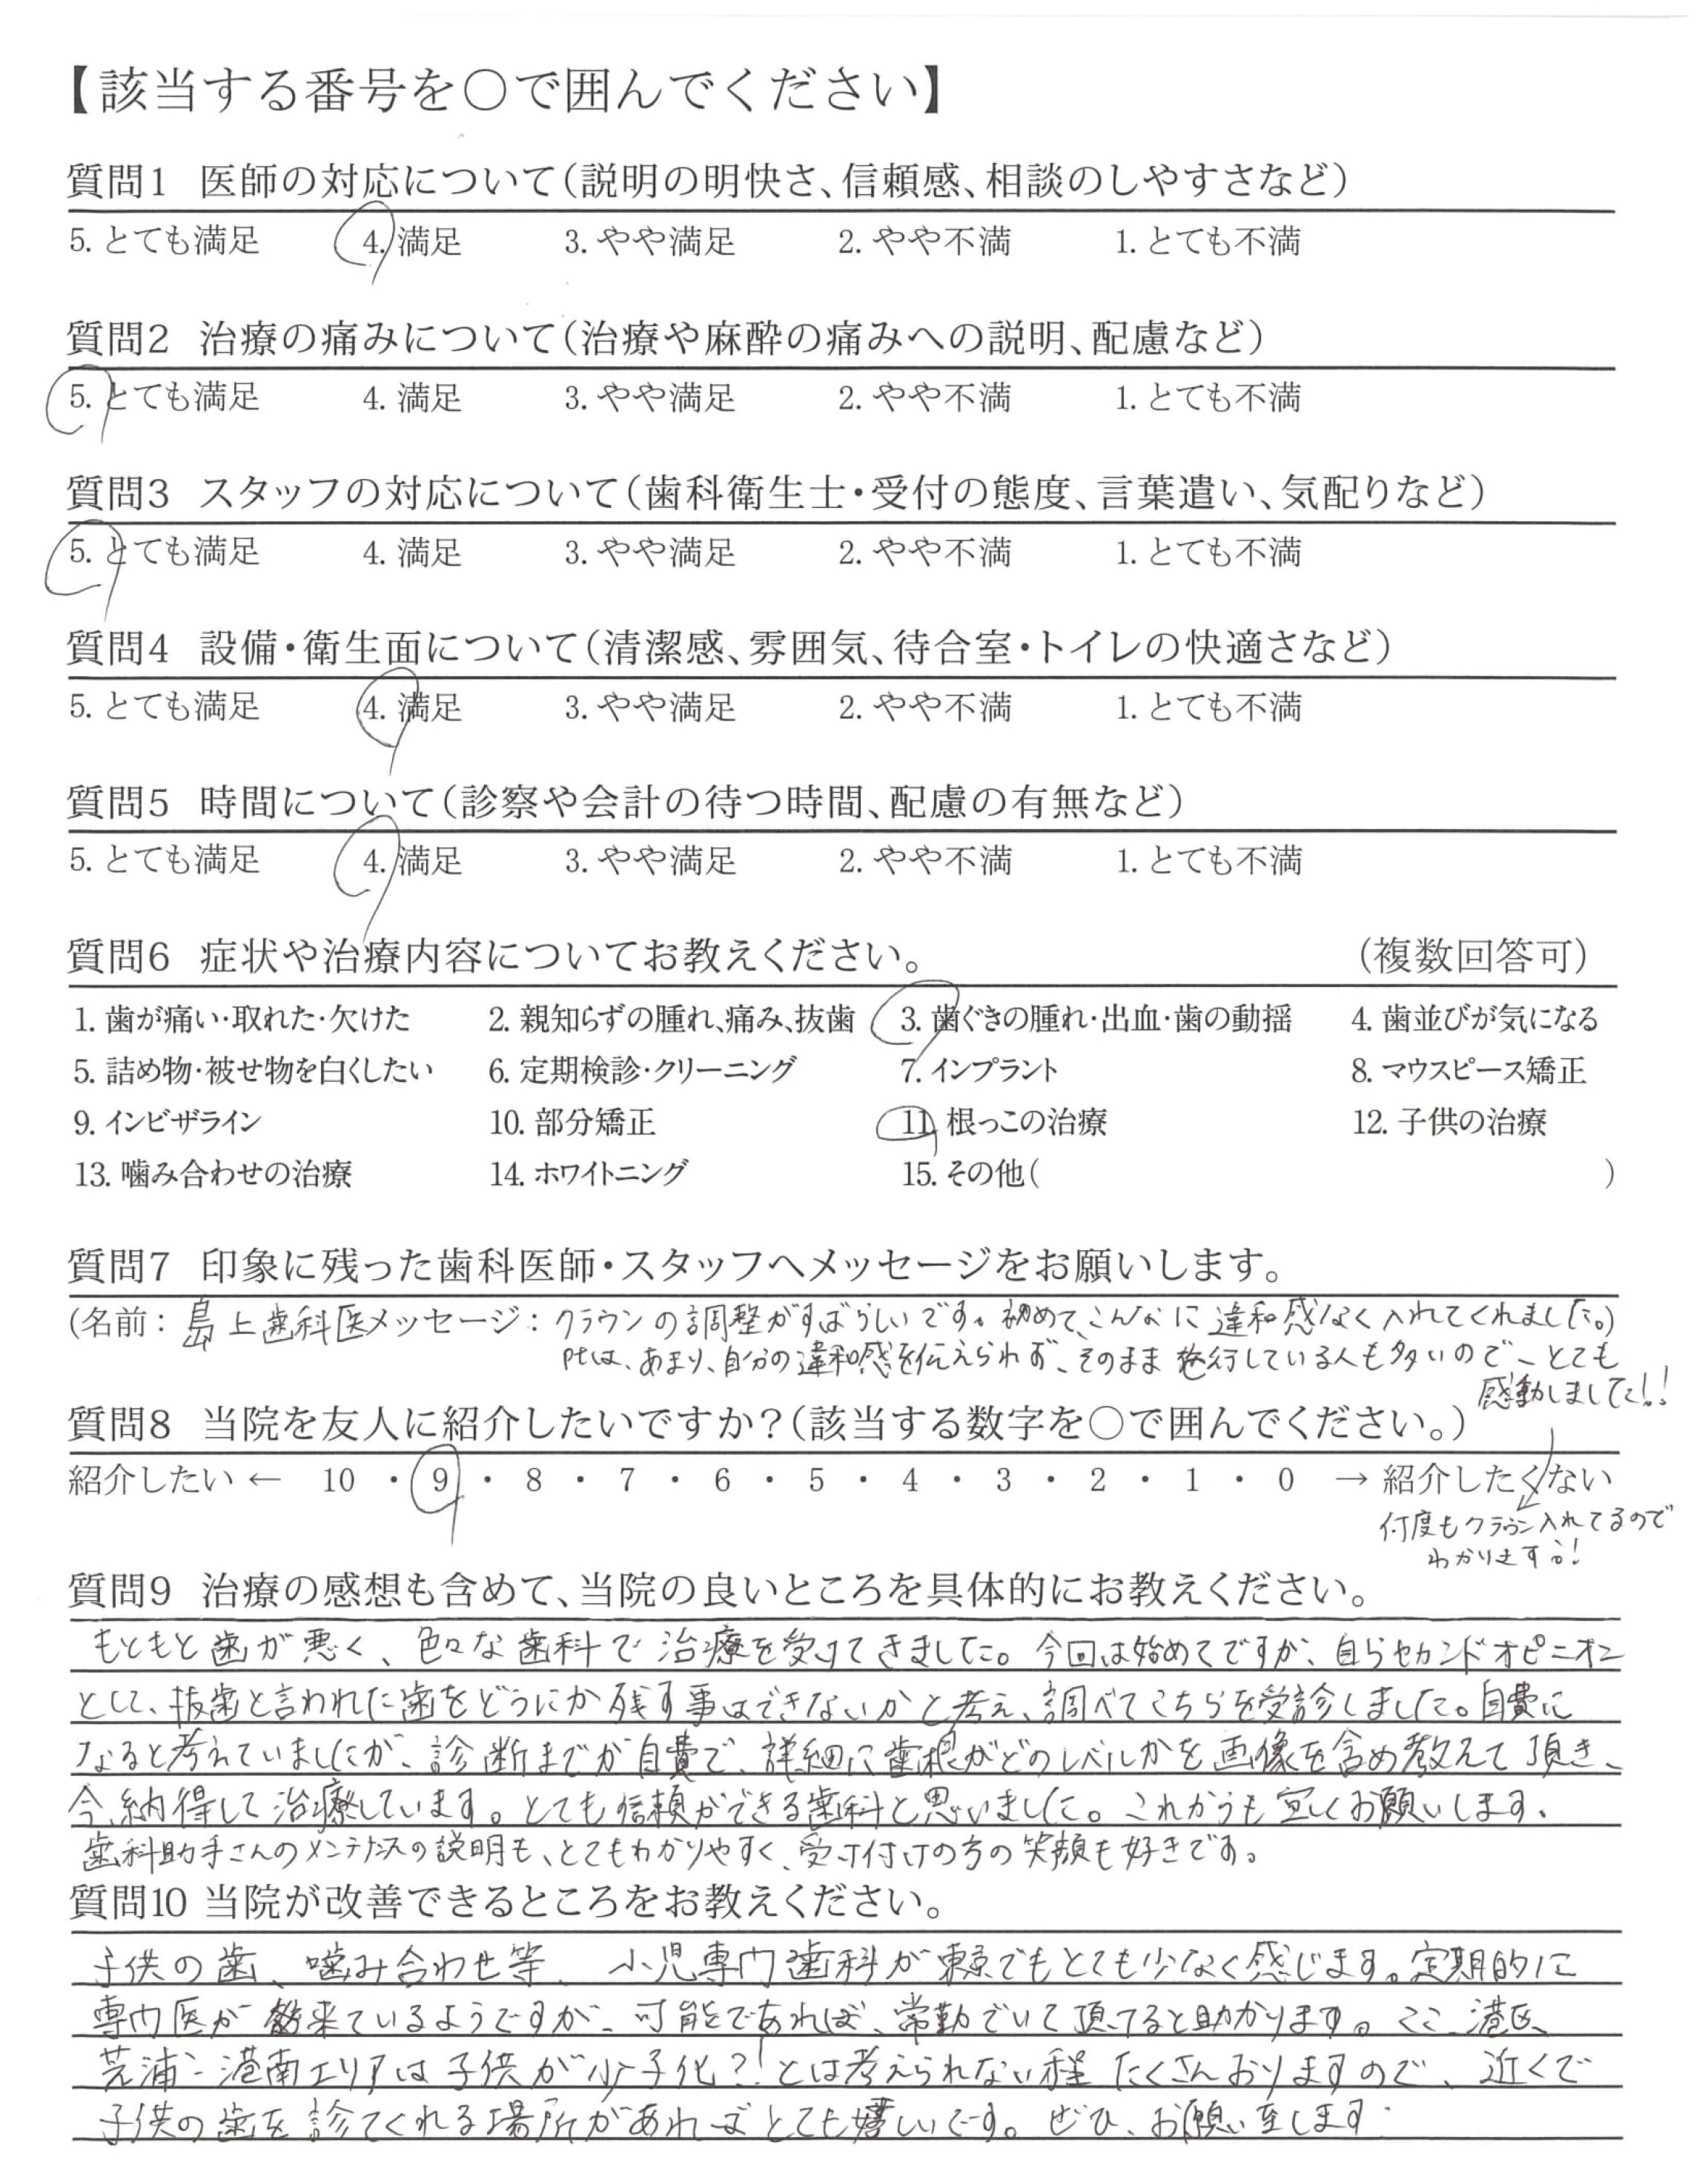 【該当する番号を〇で囲んでください】
質問1 医師の対応について(説明の明快さ、信頼感、相談のしやすさなど)
5. とても満足 4. 満足 3. やや満足 2. やや不満 1. とても不満
質問2 治療の痛みについて(治療や麻酔の痛みへの説明、配慮など)
5. とても満足 4. 満足 3. やや満足 2. やや不満 1. とても不満
質問3 スタッフの対応について(歯科衛生士・受付の態度、言葉遣い、気配りなど)
5. とても満足 4. 満足 3. やや満足 2. やや不満 1. とても不満
質問4 設備・衛生面について(清潔感、雰囲気、待合室・トイレの快適さなど)
5. とても満足 4. 満足 3. やや満足 2. やや不満 1. とても不満
質問5 時間について(診察や会計の待つ時間、配慮の有無など)
5. とても満足 4. 満足 3. やや満足 2. やや不満 1. とても不満
質問6 症状や治療内容についてお教えください。 (複数回答可)
1. 歯が痛い・取れた・欠けた 2. 親知らずの腫れ、痛み、抜歯 3. 歯ぐきの腫れ・出血・歯の動揺 4. 歯並びが気になる
5. 詰め物・被せ物を白くしたい 6. 定期検診・クリーニング 7. インプラント 8. マウスピース矯正
9. インビザライン 10. 部分矯正 11. 根っこの治療 12. 子供の治療
13. 噛み合わせの治療 14. ホワイトニング 15. その他( )
質問7 印象に残った歯科医師・スタッフへメッセージをお願いします。
(名前: 島上歯科医 メッセージ: クラウンの調整がすばらしいです。初めて、こんなに違和感なく入れてくれました。)
Ptは、あまり、自分の違和感を伝えられず、そのまま 施行している人も多いので、とても
感動しました!!
質問8 当院を友人に紹介したいですか?(該当する数字を〇で囲んでください。)
紹介したい ← 10 ・ 9 ・ 8 ・ 7 ・ 6 ・ 5 ・ 4 ・ 3 ・ 2 ・ 1 ・ 0 → 紹介したくない
何度もクラウン入れてるので
わかります!
質問9 治療の感想も含めて、当院の良いところを具体的にお教えください。
もともと歯が悪く、色々な歯科で治療を受けてきました。今回は始めてですが、自らセカンドオピニオン
として、抜歯と言われた歯をどうにか残す事はできないかと考え、調べてこちらを受診しました。自費に
なると考えていましたが、診断までが自費で、詳細に歯根がどのレベルかを画像を含め教えて頂き、
今、納得して治療しています。とても信頼ができる歯科と思いました。これからも宜しくお願いします。
歯科助手さんのメンテナンスの説明も、とてもわかりやすく、受け付けの方の笑顔も好きです。
質問10 当院が改善できるところをお教えください。
子供の歯、噛み合わせ等、小児専門歯科が東京でもとても少なく感じます。定期的に
専門医が来ているようですが、可能であれば、常勤でいて頂けると助かります。ここ、港区、
芝浦、港南エリアは子供が少子化?!とは考えられない程たくさんおりますので、近くで
子供の歯を診てくれる場所があればとても嬉しいです。ぜひ、お願い至します。